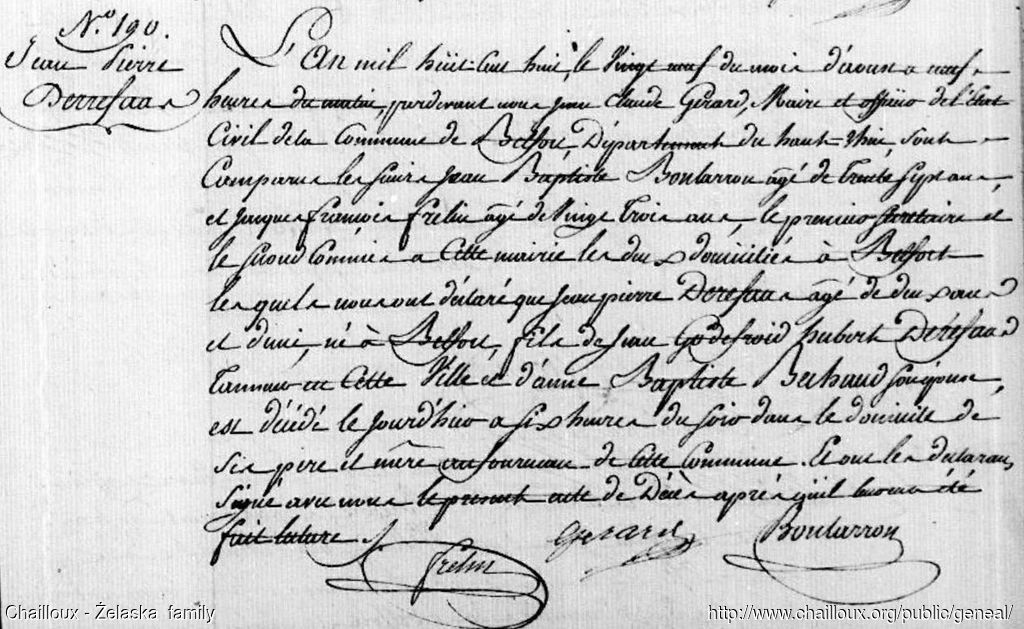 N.º 190.
Jean Pierre
Derresaas
L'An mil huit Cent huit, le Vingt neuf du mois d'aoust a neuf
heures du matin, pardevant nous Jean Claude Gérard, Maire et officier de l'Etat
Civil de la Commune de Belfort, Département du haut-Rhin, sont
Comparus les sieurs Jean Baptiste Bontarron agé de trente sept ans,
et Jacques françois frelin agé de Vingt trois ans, le premier secretaire et
le second Commis a Cette mairie les deux domiciliés à Belfort
lesquels nous ont déclaré que Jean pierre Deresaas agé de deux ans
et demi, né à Belfort, fils de Jean Godefroid hubert Deresaas
Tanneur en Cette Ville et d'anne Baptiste Bechaud son épouse,
est décédé le jourd'hier a six heures du soir dans le domicile de
ses pere et mère au fourneau de Cette Commune. Et ont les déclarans
signé avec nous le present acte de Décès après qu'il leur en a été
fait lecture.
frelin Gerard Bontarron
Chailloux - Želaska family
http://www.chailloux.org/public/geneal/